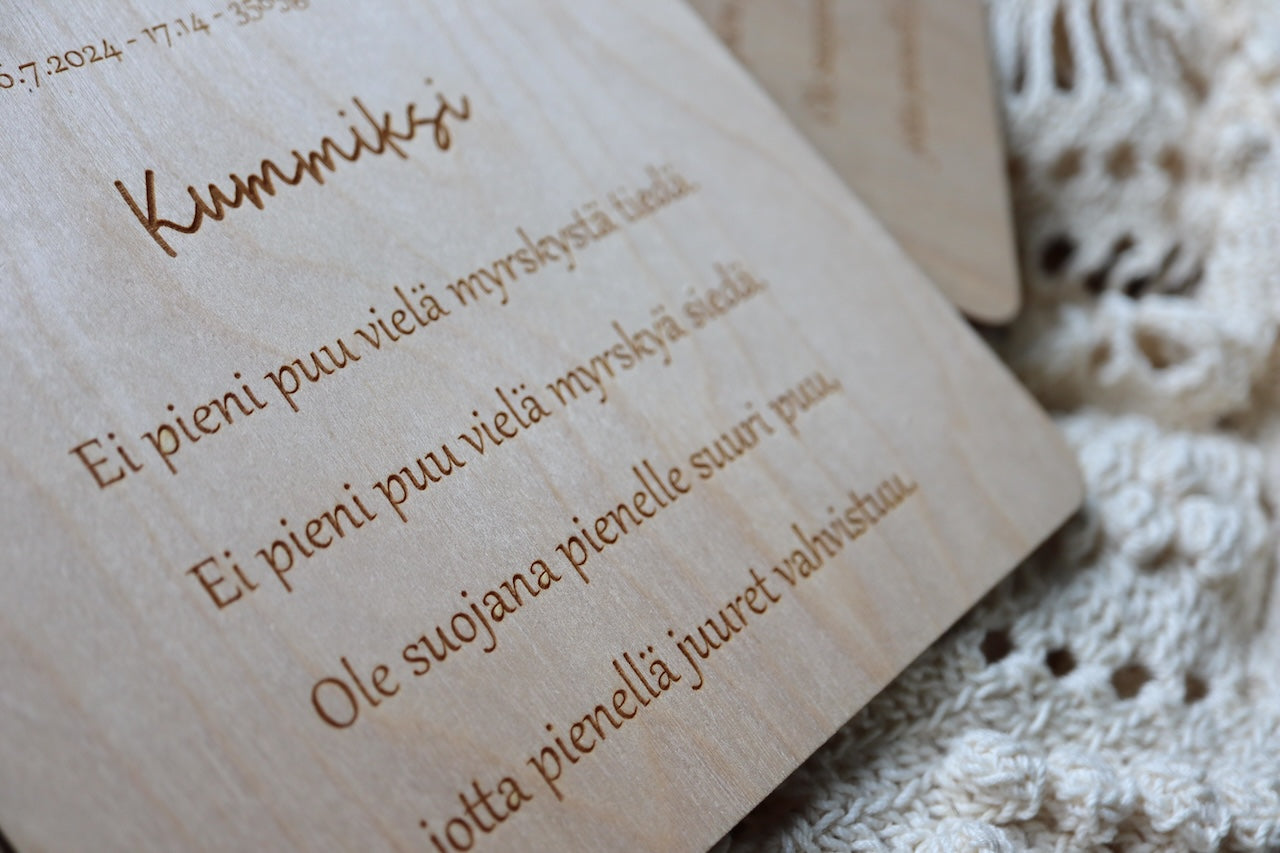 .7.2024 - 17.14 -
Kummiksi
Ei pieni puu vielä myrskystä tiedä.
Ei pieni puu vielä myrskyä siedä.
Ole suojana pienelle suuri puu,
jotta pienellä juuret vahvistuu.